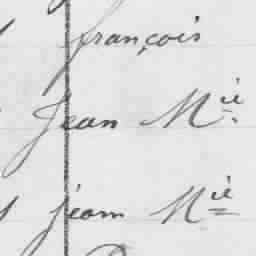 françois
Jean Mie
jeam Mie